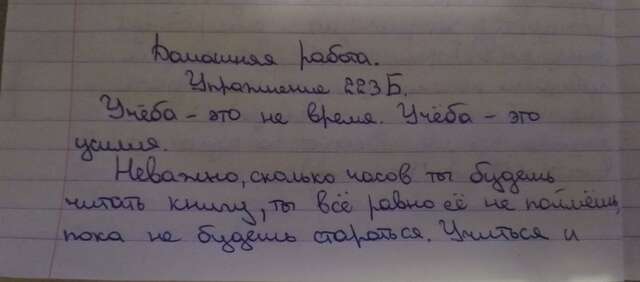 Домашняя работа.
Упражнение 223Б.
Учёба - это не время. Учёба - это
усилия.
Неважно, сколько часов ты будешь
читать книгу, ты всё равно её не поймёшь,
пока не будешь стараться. Учиться и